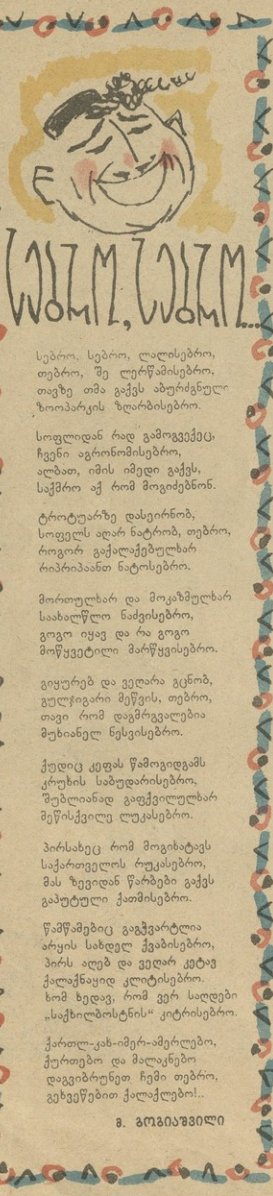 სებრო, სებრო...
სებრო, სებრო, ლალისებრო,
თებრო, შე ლერწამისებრო,
თავზე თმა გაქვს აბურძგნული
ზოოპარკის ზღარბისებრო.
სოფლიდან რად გამოგვექეც,
ჩვენი აგრონომისებრო,
ალბათ, იმის იმედი გაქვს,
საქმრო აქ რომ მოგიძებნონ.
ტროტუარზე დასეირნობ,
სოფელს აღარ ნატრობ, თებრო,
როგორ გაქალაქებულხარ
რიპრიპაანთ ნატოსებრო.
მორთულხარ და მოკაზმულხარ
საახალწლო ნაძვისებრო,
გოგო იყავ და რა გოგო
მოწყვეტილი მარწყვისებრო.
გიყურებ და ვეღარა გცნობ,
გულჯიგარი მეწვის, თებრო,
თავი რომ დაგმრგვალებია
მუხიანელ ნესვისებრო.
ქუდიც კეფას წამოგიდგამს
კრუხის საბუდარისებრო,
შუბლიანად გაფქვილულხარ
მეწისქვილე ლუკასებრო.
პირსახეც რომ მოგიხატავს
საქართველოს რუკასებრო,
მას ზევიდან წარბები გაქვს
გაპუტული ქათმისებრო.
წამწამებიც გაგჭვარტლია
არყის სახდელ ქვაბისებრო,
პირს აღებ და ვეღარ კეტავ
ქალაქნაყიდ კლიტისებრო.
ხომ ხედავ, რომ ვერ საღდები
„საქხილბოსტნის“ კიტრისებრო.
ქართლ-კახ-იმერ-ამერლებო,
ქურთებო და მალაკნებო
დაგვიბრუნეთ ჩემი თებრო,
გეხვეწებით ქალაქლებო!..
მ. გოგიაშვილი